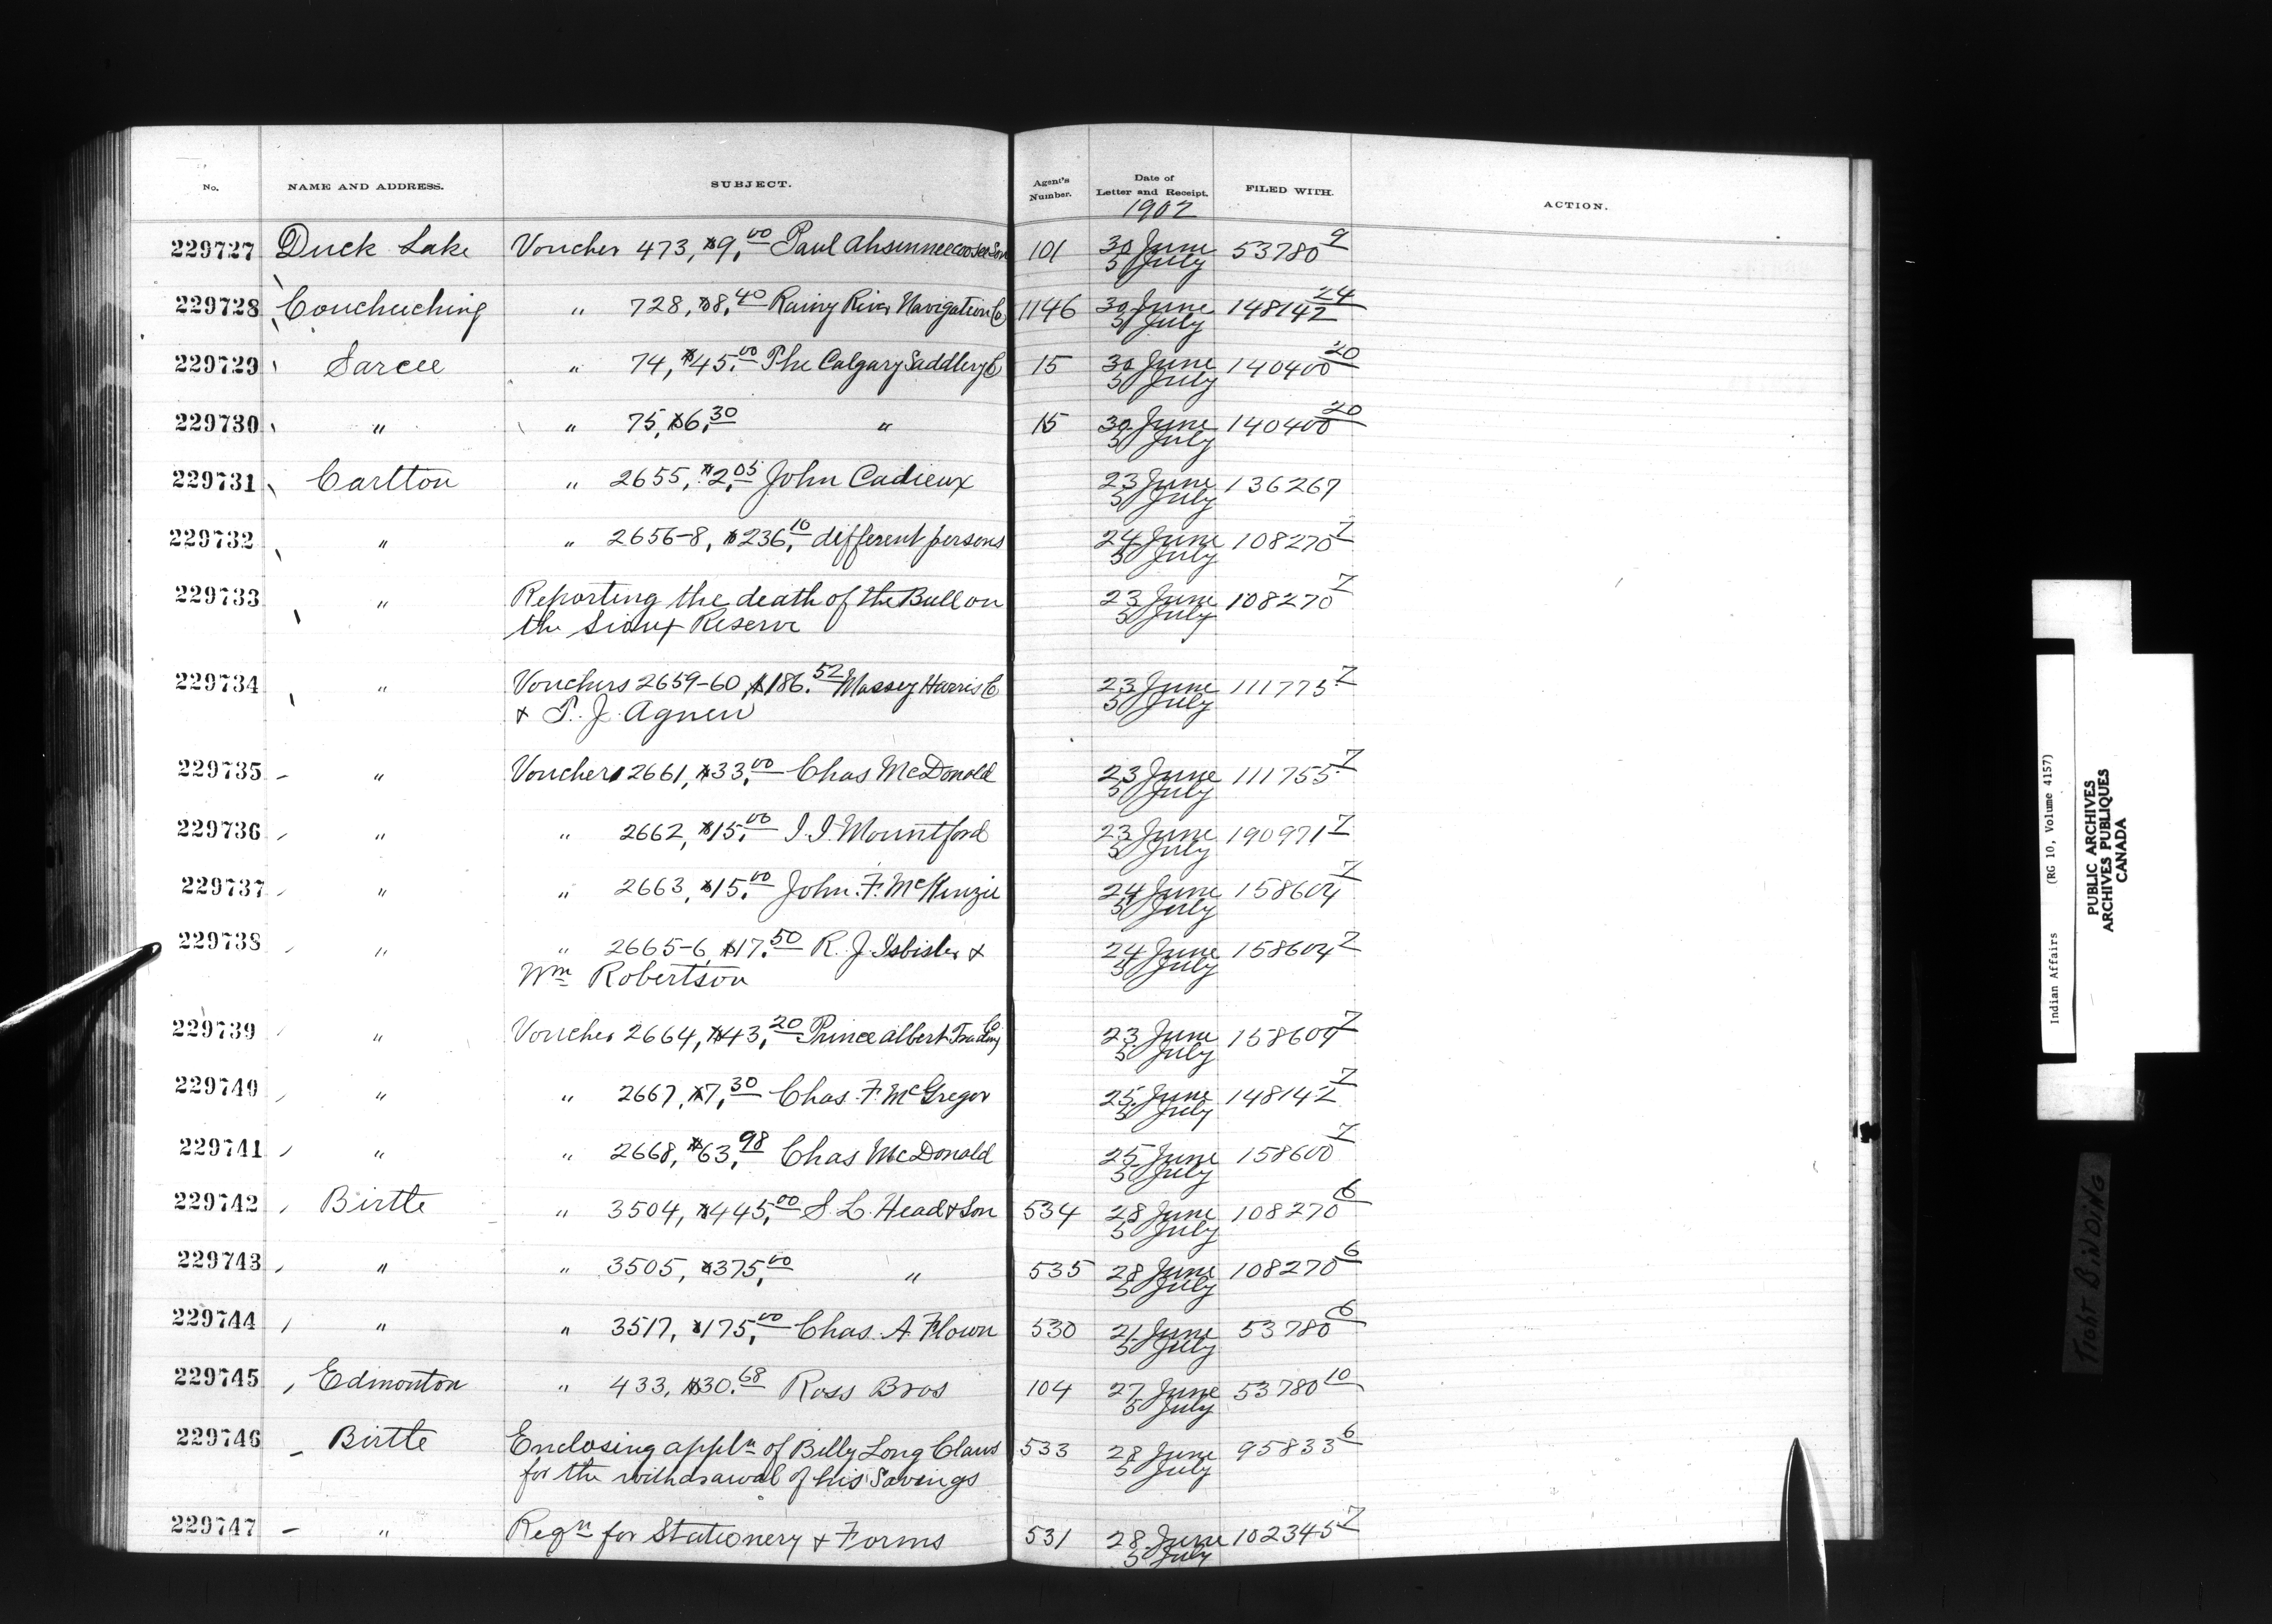 No. NAME AND ADDRESS. SUBJECT. Agent's Number. Date of Letter and Receipt. FILED WITH. ACTION.
1902
229727 Duck Lake Voucher 473, $9.00 Paul 101 30 June 53780 9
5 July
229728 Couchiching " 728, $8.40 Rainy River Navigation Co 1146 30 June 148142 24
5 July
229729 Sarcee " 74, $45.00 The Calgary Saddlery Co 15 30 June 140400 20
5 July
229730 " " 75, $6.30 " 15 30 June 140400 20
5 July
229731 Carlton " 2655, $2.05 John Cadieux 23 June 136267
5 July
229732 " " 2656-8, $236.10 different persons 24 June 108270 7
5 July
229733 " Reporting the death of the Bull on 23 June 108270 7
the Sioux Reserve 5 July
229734 " Vouchers 2659-60, $186.52 Massey Harris Co 23 June 111775 7
& T. J. Agnew 5 July
229735 " Voucher 2661, $33.00 Chas McDonald 23 June 111755 7
5 July
229736 " " 2662, $15.00 J. J. Mountford 23 June 190971 7
5 July
229737 " " 2663, $15.00 John F. McKenzie 24 June 158604 7
5 July
229738 " " 2665-6, $17.50 R. J. Isbister & 24 June 158604 7
Wm Robertson 5 July
229739 " Voucher 2664, $43.20 Prince Albert Trading Co 23 June 158604 7
5 July
229740 " " 2667, $7.30 Chas. F. McGregor 25 June 148142 7
5 July
229741 " " 2668, $63.98 Chas McDonald 25 June 158600 7
5 July
229742 Birtle " 3504, $445.00 S. L. Head & Son 534 28 June 108270 6
5 July
229743 " " 3505, $375.00 " 535 28 June 108270 6
5 July
229744 " " 3517, $175.00 Chas. A. Flown 530 21 June 53780 6
5 July
229745 Edmonton " 433, $30.68 Ross Bros 104 27 June 53780 10
5 July
229746 Birtle Enclosing appln of Billy Long Claws 533 28 June 95833 6
for the withdrawal of his Savings 5 July
229747 " Reqn for Stationery & Forms 531 28 June 102345 7
5 July
Indian Affairs (RG 10, Volume 4157)
PUBLIC ARCHIVES
ARCHIVES PUBLIQUES
CANADA
TIGHT BINDING